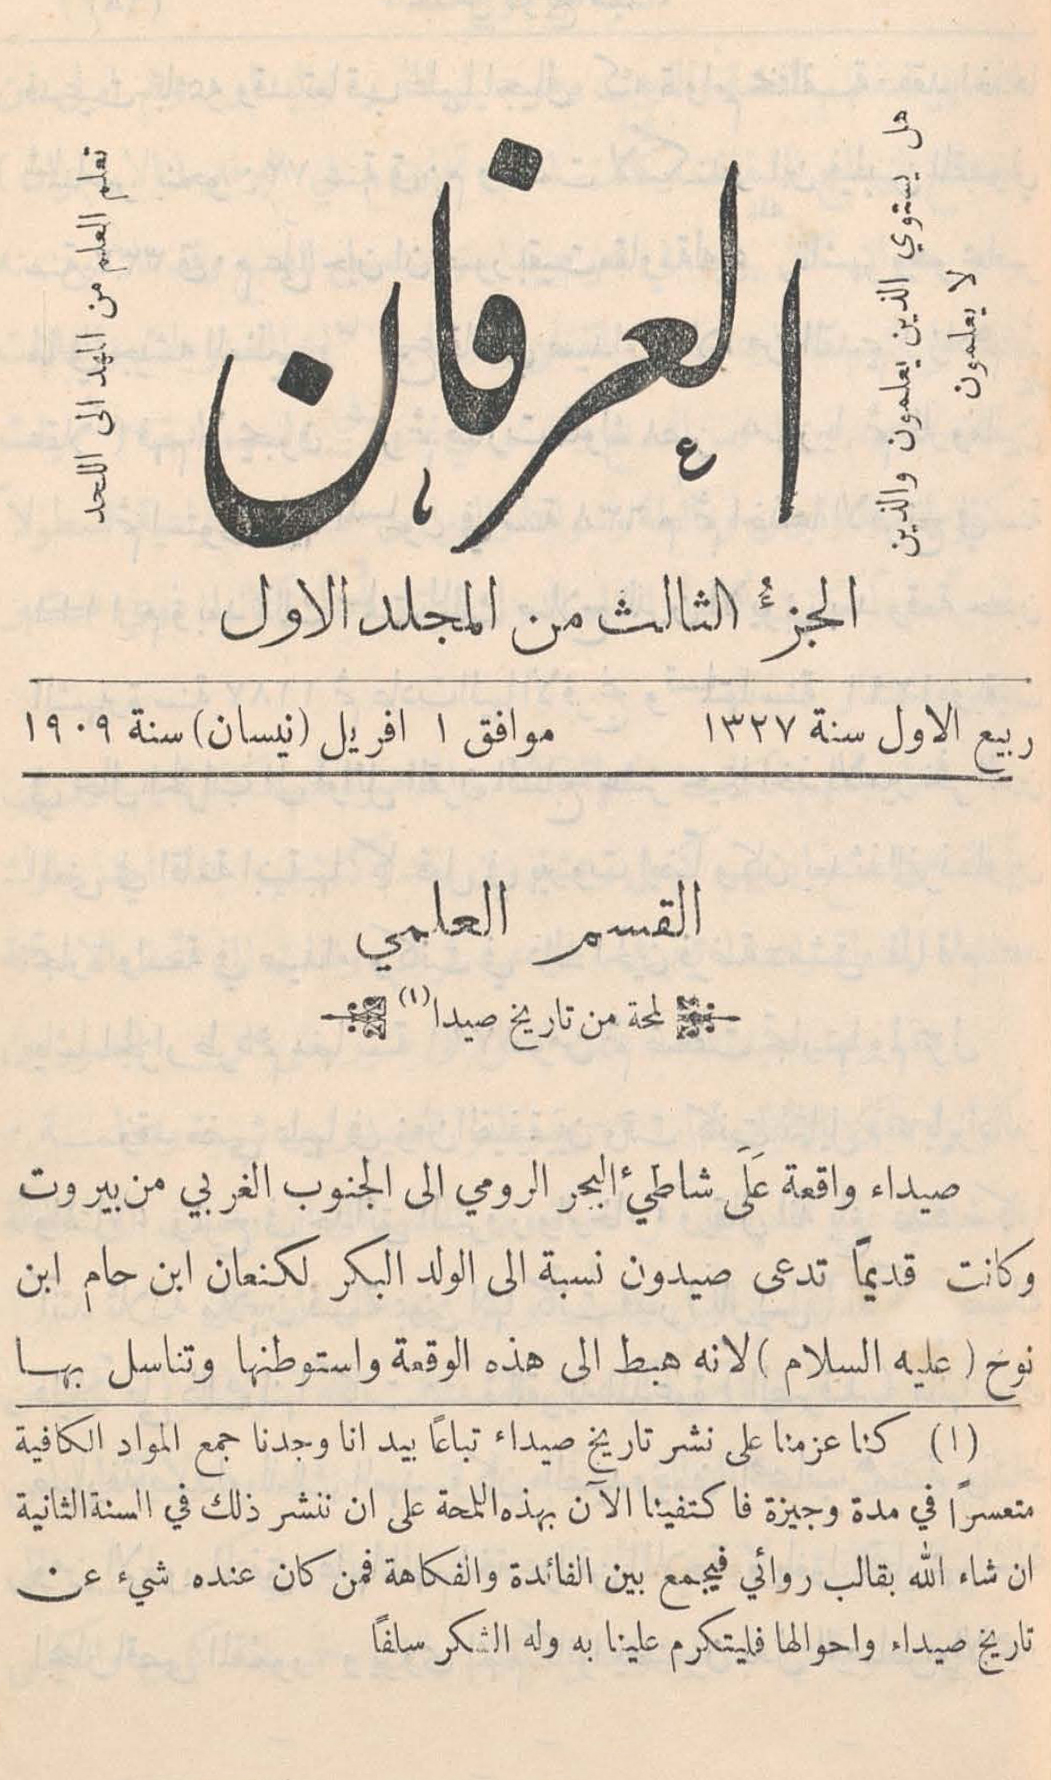 هل يستوي الذين يعلمون والذين
لا يعلمون
العرفان
تعلم العلم من المهد الى اللحد
الجزءُ الثالث من المجلد الاول
ربيع الاول سنة ١٣٢٧ موافق ١ افريل (نيسان) سنة ١٩٠٩
القسم العلمي
لمحة من تاريخ صيدا (١)
صيداء واقعة عَلَى شاطيءُ البحر الرومي الى الجنوب الغربي من بيروت
وكانت قديماً تدعى صيدون نسبة الى الولد البكر لكنعان ابن حام ابن
نوح ( عليه السلام ) لانه هبط الى هذه الوقعة واستوطنها وتناسل بها
(١) كنا عزمنا على نشر تاريخ صيداء تباعاً بيد انا وجدنا جمع المواد الكافية
متعسراً في مدة وجيزة فاكتفينا الآن بهذه اللمحة على ان ننشر ذلك في السنة الثانية
ان شاء الله بقالب روائي فيجمع بين الفائدة والفكاهة فمن كان عنده شيء عن
تاريخ صيداء واحوالها فليتكرم علينا به وله الشكر سلفاً